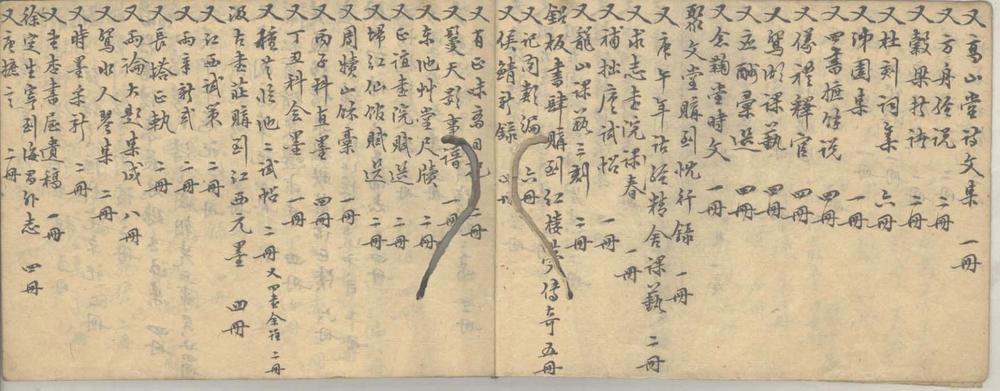 又 高山堂詩文集 一冊
又 方舟經說 二冊
又 穀梁折諸 二冊
又 杜刻詞集 六冊
又 沛園集 一冊
又 四書摭余說 四冊
又 儀禮釋官 四冊
又 鴛湖課藝 四冊
又 玉酬彙選 四冊
又 念鞠堂時文 一冊
聚文堂購到 悅行錄 一冊
又 庚午年詁經精舍課藝 二冊
又 求志書院課春 一冊
又 補拙廬試帖 一冊
又 龍山課藝三刻 二冊
鋁板書肆購到 紅樓夢傳奇 五冊
又 記聞類編 六冊
又 侯鯖新錄
又 百正味高 二冊
又 鬘天影事譜 一冊
又 東池草堂尺牘 二冊
又 正誼書院賦選 二冊
又 掃江仙館賦選 二冊
又 周犢山稿 一冊
又 丙子科直墨 四冊
又 丁丑科會墨 一冊
又 種芝臨池二試帖 二冊 又 四書全註 二冊
汲古香莊購到 江西元墨 四冊
又 江西試策 二冊
又 兩章新式 二冊
又 長塔正執 二冊
又 兩論大題集成 八冊
又 鴛水人琴集 二冊
又 時墨采新 二冊
又 重志書屋遺稿 一冊
徐定生寄到 海昌外志 四冊
又 庚摭言 二冊